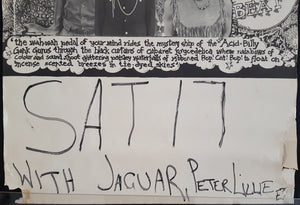 "the wahwah pedal of your mind rides the mystery ship of the 'Acid-Billy
Gank Gurus through the black curtains of cabaret psycedelica where rainbows of
colour and sound shoot glittering paisley waterfalls of ribboned Bop Cat Bop to float on
incense scented breezes in tie-dyed skies"
SAT 17
WITH JAGUAR, PETER LILLIE